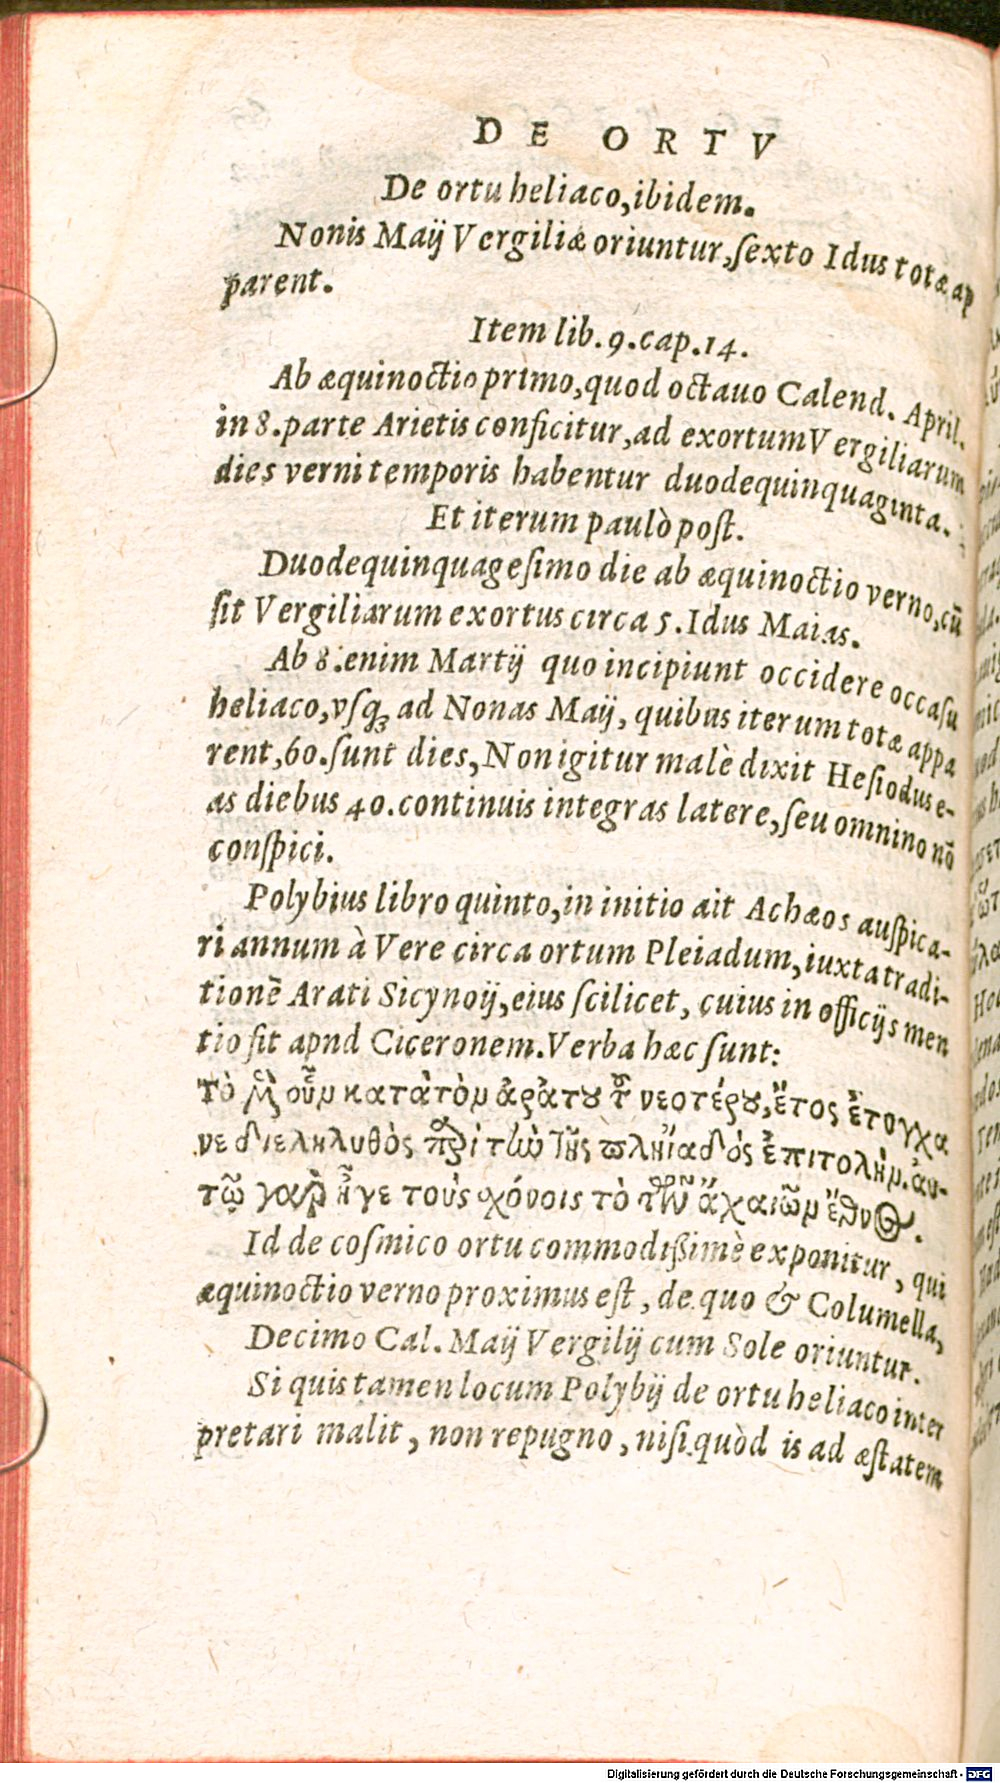 DE ORTV
De ortu heliaco, ibidem.
Nonis Maij Vergiliæ oriuntur, ſexto Idus totæ ap
parent.
Item lib. 9. cap. 14.
Ab æquinoctio primo, quod octauo Calend. April.
in 8. parte Arietis conficitur, ad exortum Vergiliarum
dies verni temporis habentur duodequinquaginta.
Et iterum paulò poſt.
Duodequinquageſimo die ab æquinoctio verno, cū
ſit Vergiliarum exortus circa 5. Idus Maias.
Ab 8. enim Martij quo incipiunt occidere occaſu
heliaco, vſq; ad Nonas Maij, quibus iterum totæ appa
rent, 60. ſunt dies, Non igitur malè dixit Heſiodus e-
as diebus 40. continuis integras latere, ſeu omnino nō
conſpici.
Polybius libro quinto, in initio ait Achæos auſpica-
ri annum à Vere circa ortum Pleiadum, iuxta tradi-
tionē Arati Sicynoij, eius ſcilicet, cuius in officijs men
tio fit apnd Ciceronem. Verba hæc ſunt:
Τὸ μὲν οὖν κατὰ τὸν ἄρατου τ νεοτέρου, ἔτος ἐτογχα
νε διεληλυθὸς περὶ τὼ τῆς πληϊάδος ἐπιτολὴν. ἀυ-
τῷ γαρ ἦγε τοὺς χόνοις τὸ τῶν ἄχαιῶν ἔθνος.
Id de coſmico ortu commodißimè exponitur, qui
æquinoctio verno proximus eſt, de quo & Columella,
Decimo Cal. Maij Vergilij cum Sole oriuntur.
Si quis tamen locum Polybij de ortu heliaco inter
pretari malit, non repugno, niſi quòd is ad æſtatem
Digitalisierung gefördert durch die Deutsche Forschungsgemeinschaft - DFG